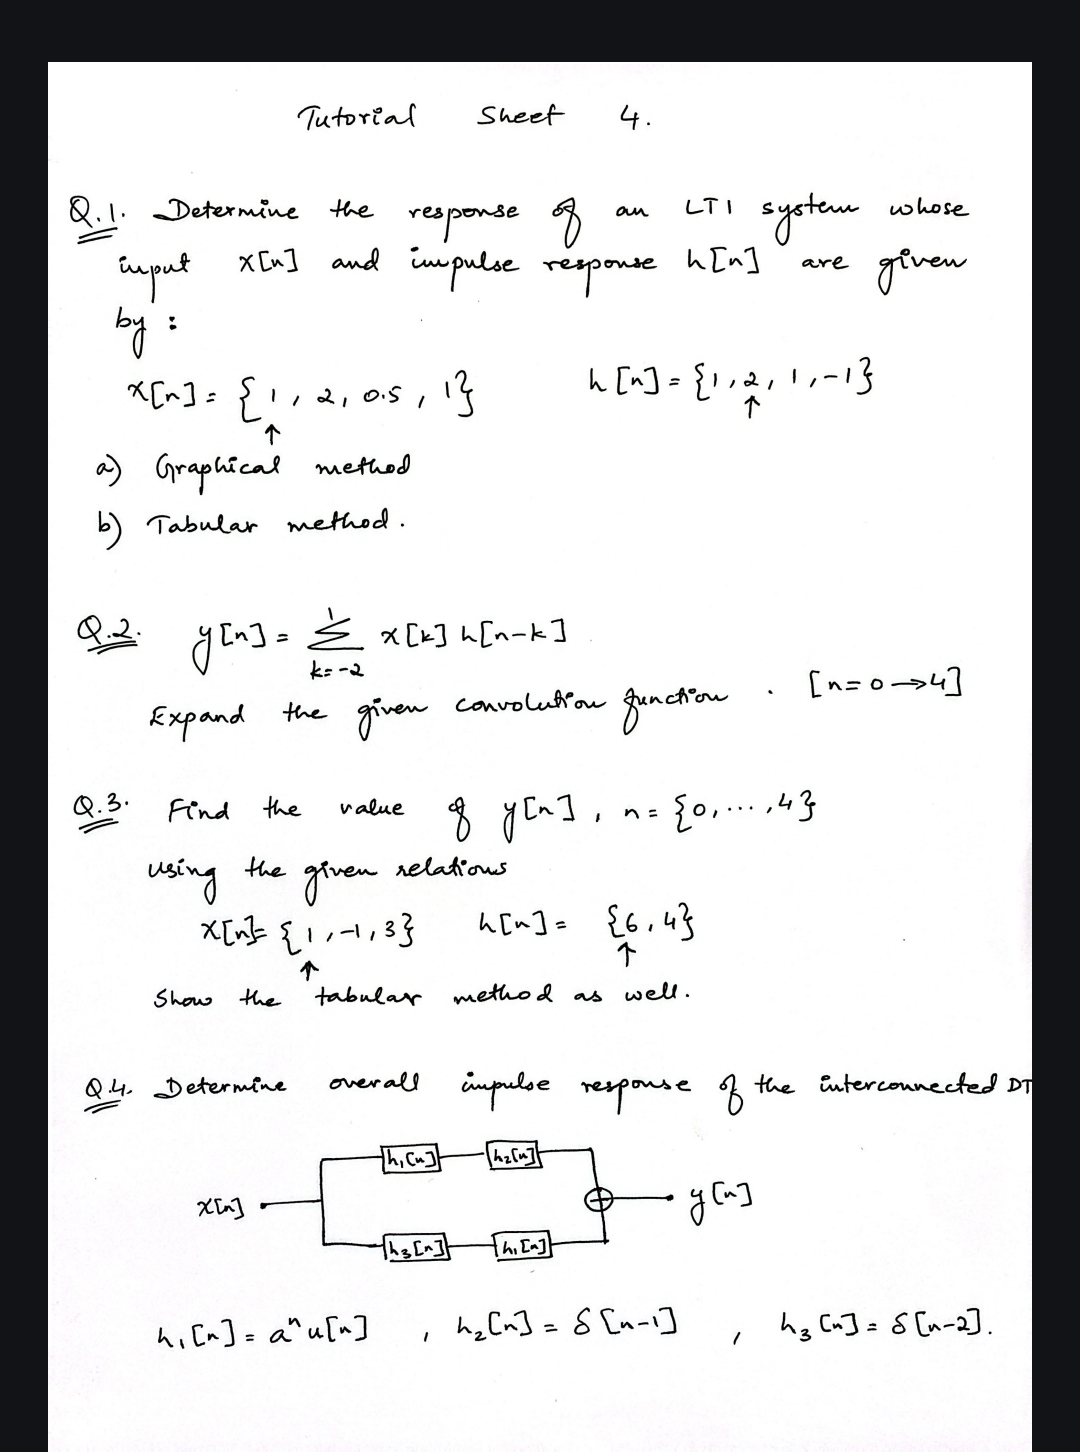 Tutorial Sheet 4.
Q.1. Determine the response of an LTI system whose
input x[n] and impulse response h[n] are given
by :
x[n] = {1, 2, 0.5, 1} h[n] = {1, 2, 1, -1}
↑ ↑
a) Graphical method
b) Tabular method.
Q.2. y[n] = 1 Σ k=-2 x[k] h[n-k]
Expand the given convolution function . [n=0→4]
Q.3. Find the value of y[n], n = {0, ..., 4}
using the given relations
x[n]= {1, -1, 3} h[n] = {6, 4}
↑ ↑
Show the tabular method as well.
Q.4. Determine overall impulse response of the interconnected DT
h₁[n] h₂[n]
x[n] + y[n]
h₃[n] h₁[n]
h₁[n] = aⁿu[n] , h₂[n] = δ[n-1] , h₃[n] = δ[n-2].